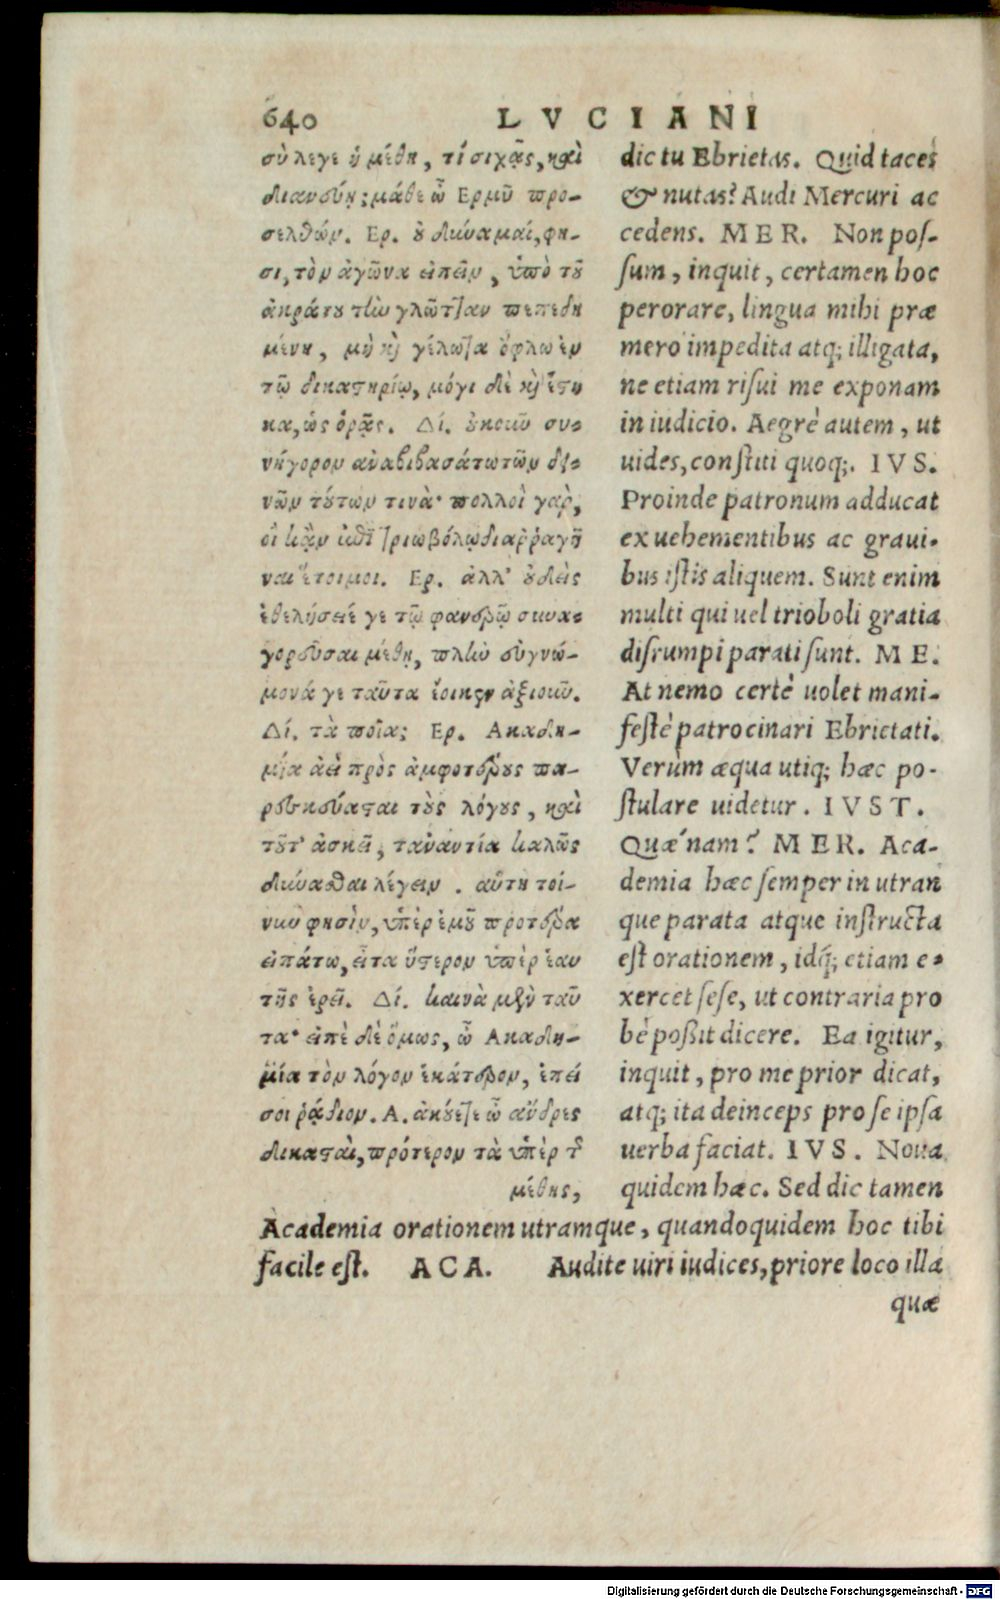 640 LVCIANI
σὺ λέγε ἡ μέθη, τί σιγᾷς, καὶ
διανεύῃ; μάθε ὦ Ερμῦ προ-
σελθών. Ερ. ὀ δύναμαί, φη-
σι, τὸν ἀγῶνα εἰπεῖν, ὑπὸ τῦ
ἀκράτου τὴν γλῶτταν πεπεδη
μένη, μὴ κὴ γέλωτα ὄφλω ἐν
τῷ δικαστηρίῳ, μόγι δὲ κὴ ἕστη
κα, ὡς ὁρᾷς. Δί. ὀκοιῦ συν-
νήγορον ἀναβιβασάτω τῶν δε-
νῶν τούτων τινὰ· πολλοὶ γαρ,
οἱ κἂν ἐπὶ τριωβόλῳ διαῤῥαγῆ
ναι ἕτοιμοι. Ερ. ἀλλ' οὐδεὶς
ἐθελήσειέ γε τῷ φανερῷ συνα-
γορεῦσαι μέθῃ, πλὴν εὐγνώ-
μονά γε ταῦτα ἔοικεν ἀξιοιῦ.
Δί. τὰ ποῖα; Ερ. Ακαδη-
μία ἀεὶ πρὸς ἀμφοτέρους πα-
ρεσκεύασται τοὺς λόγους, καὶ
τοῦτ' ἀσκεῖ, τἀναντία καλῶς
δύνασθαι λέγειν. αὕτη τοί-
νυν φησὶν, ὑπὲρ ἐμοῦ πρότερα
εἰπάτω, εἶτα ὕστερον ὑπὲρ ἑαυ
τῆς ἐρεῖ. Δί. καινὰ μὲν ταῦ
τα· εἰπὲ δὲ ὅμως, ὦ Ακαδη-
μία τὸν λόγον ἑκάτερον, ἐπεί
σοι ῥᾴδιον. Α. ἀκούετε ὦ ἄνδρες
δικασταὶ, πρότερον τὰ ὑπὲρ τῆ
μέθης,
dic tu Ebrietas. Quid taces
& nutas? Audi Mercuri ac
cedens. MER. Non pos-
sum, inquit, certamen hoc
perorare, lingua mihi præ
mero impedita atq; illigata,
ne etiam risui me exponam
in iudicio. Aegrè autem, ut
uides, constiti quoq;. IVS.
Proinde patronum adducat
ex uehementibus ac graui-
bus istis aliquem. Sunt enim
multi qui uel trioboli gratia
disrumpi parati sunt. ME.
At nemo certè uolet mani-
festè patrocinari Ebrietati.
Verùm æqua utiq; hæc po-
stulare uidetur. IVST.
Quæ'nam? MER. Aca-
demia hæc semper in utran
que parata atque instructa
est orationem, idq́; etiam e-
xercet sese, ut contraria pro
bè poßit dicere. Ea igitur,
inquit, pro me prior dicat,
atq; ita deinceps pro se ipsa
uerba faciat. IVS. Noua
quidem hæc. Sed dic tamen
Academia orationem utramque, quandoquidem hoc tibi
facile est. ACA. Audite uiri iudices, priore loco illa
quæ
Digitalisierung gefördert durch die Deutsche Forschungsgemeinschaft - DFG